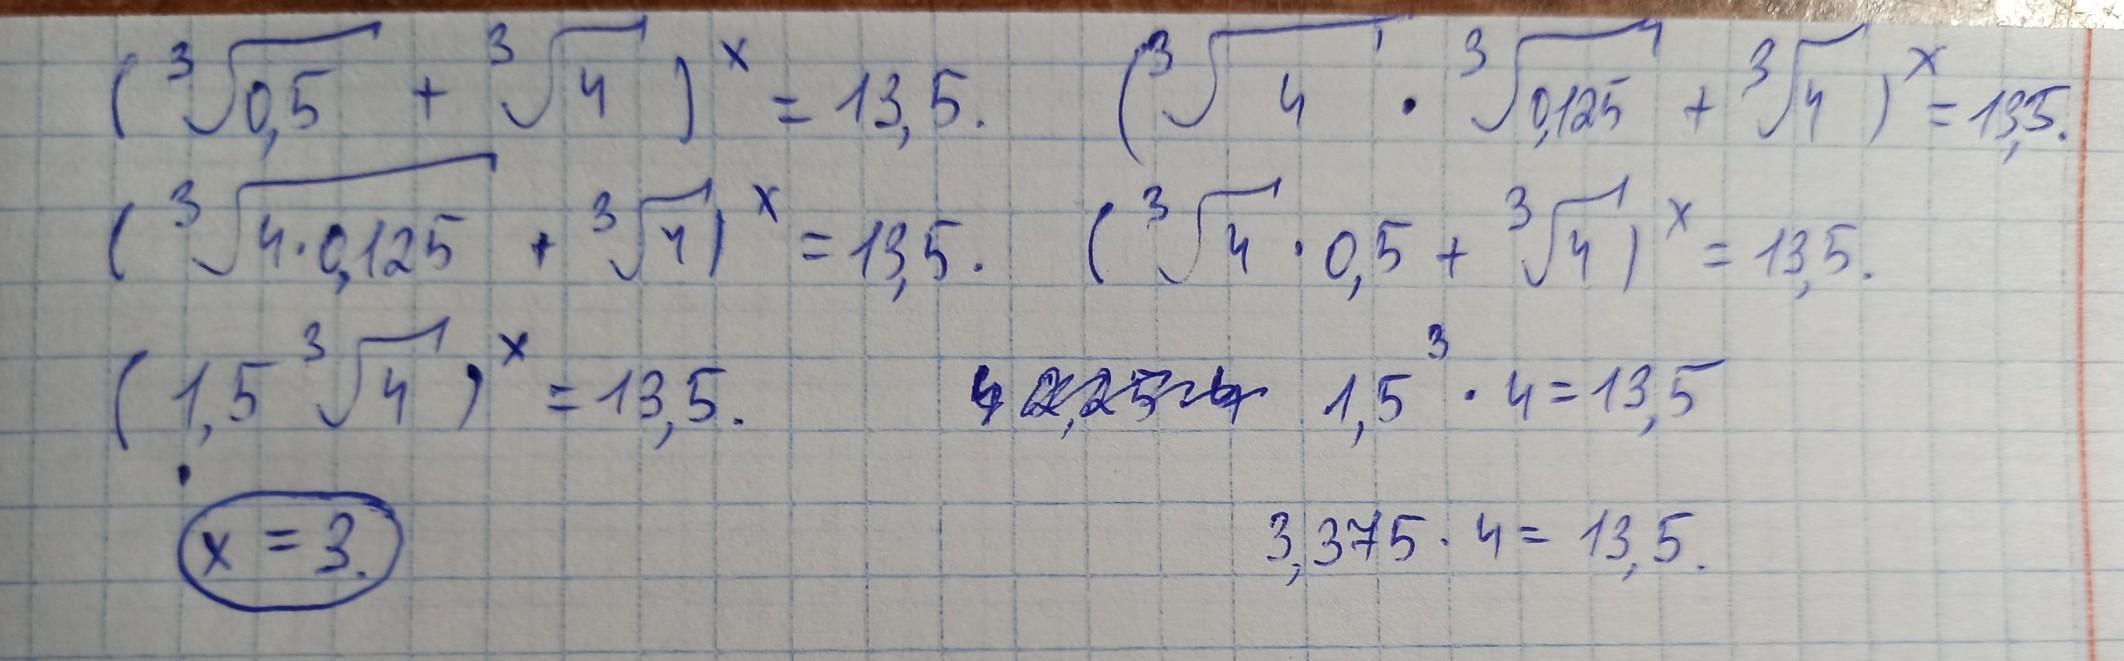 (∛0,5 + ∛4)^x = 13,5.
(∛4 · ∛0,125 + ∛4)^x = 13,5.
(∛(4·0,125) + ∛4)^x = 13,5.
(∛4 · 0,5 + ∛4)^x = 13,5.
(1,5 ∛4)^x = 13,5.
1,5^3 · 4 = 13,5
x = 3.
3,375 · 4 = 13,5.